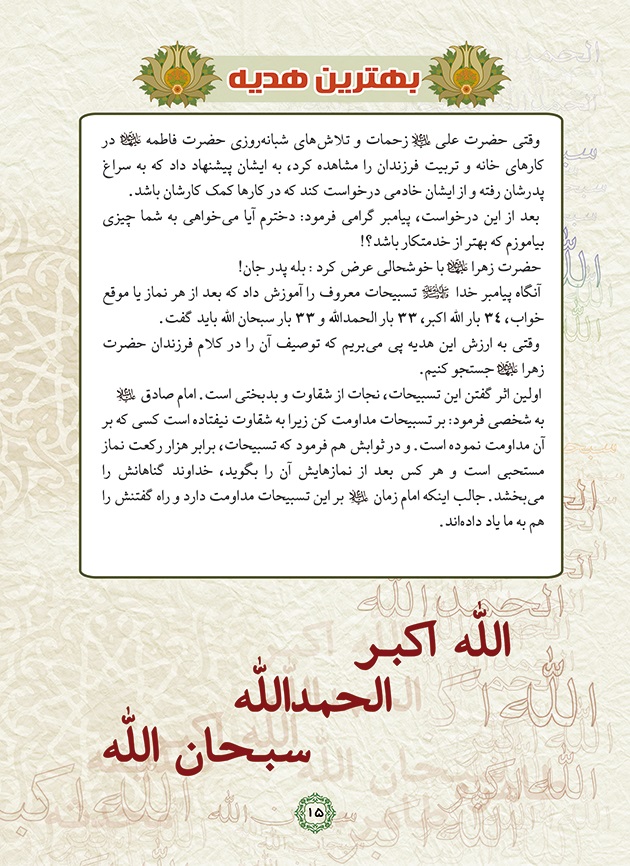 بهترین هدیه
وقتی حضرت علی علیه‌السلام زحمات و تلاش‌های شبانه‌روزی حضرت فاطمه در
کارهای خانه و تربیت فرزندان را مشاهده کرد، به ایشان پیشنهاد داد که به سراغ
پدرشان رفته و از ایشان خادمی درخواست کند که در کارها کمک کارشان باشد.
بعد از این درخواست، پیامبر گرامی فرمود: دخترم آیا می‌خواهی به شما چیزی
بیاموزم که بهتر از خدمتکار باشد؟!
حضرت زهرا با خوشحالی عرض کرد : بله پدر جان!
آنگاه پیامبر خدا تسبیحات معروف را آموزش داد که بعد از هر نماز یا موقع
خواب، ۳۴ بار الله اکبر، ۳۳ بار الحمدالله و ۳۳ بار سبحان الله باید گفت.
وقتی به ارزش این هدیه پی می‌بریم که توصیف آن را در کلام فرزندان حضرت
زهرا جستجو کنیم.
اولین اثر گفتن این تسبیحات، نجات از شقاوت و بدبختی است. امام صادق
به شخصی فرمود: بر تسبیحات مداومت کن زیرا به شقاوت نیفتاده است کسی که بر
آن مداومت نموده است. و در ثوابش هم فرمود که تسبیحات، برابر هزار رکعت نماز
مستحبی است و هر کس بعد از نمازهایش آن را بگوید، خداوند گناهانش را
می‌بخشد. جالب اینکه امام زمان بر این تسبیحات مداومت دارد و راه گفتنش را
هم به ما یاد داده‌اند.
الله اکبر
الحمدالله
سبحان الله
۱۵